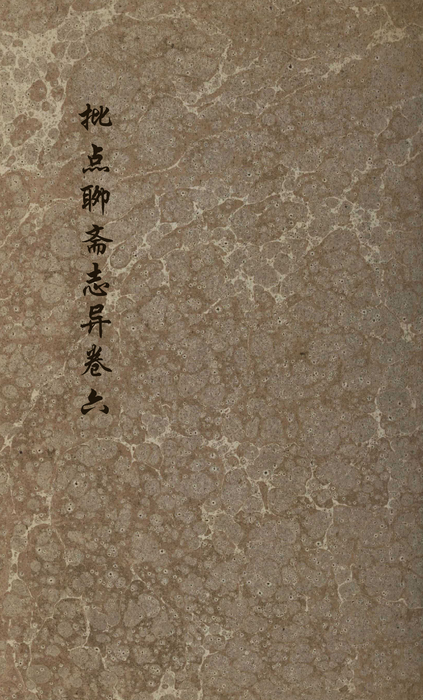 批点聊斋志异卷六